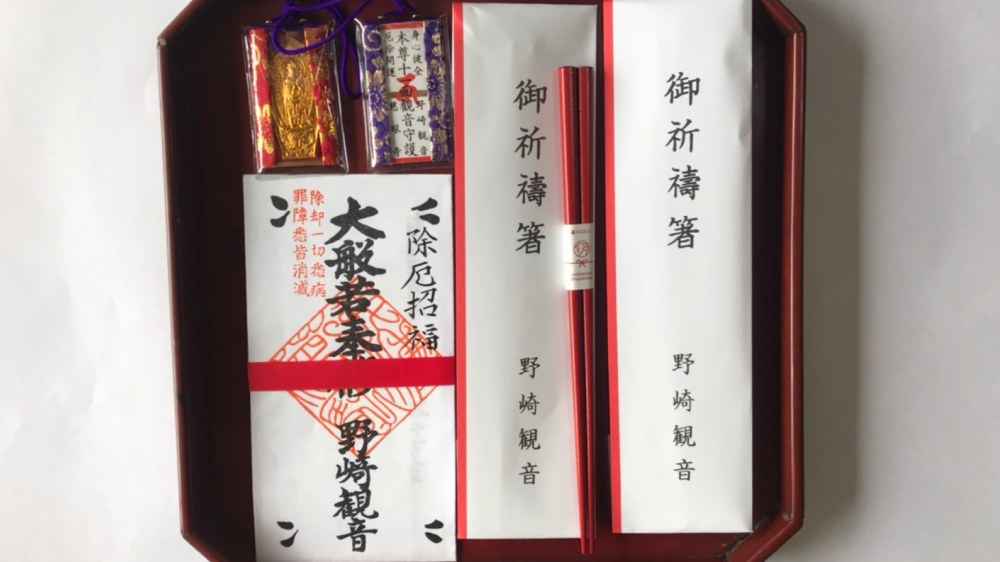 御祈禱箸
野崎観音
御祈禱箸
野崎観音
身心健全
本尊十一面観音守護
厄除開運
野崎観音
慈眼寺
除厄招福
大般若奉
野崎観音
除却一切悉病
罪障悉皆消滅